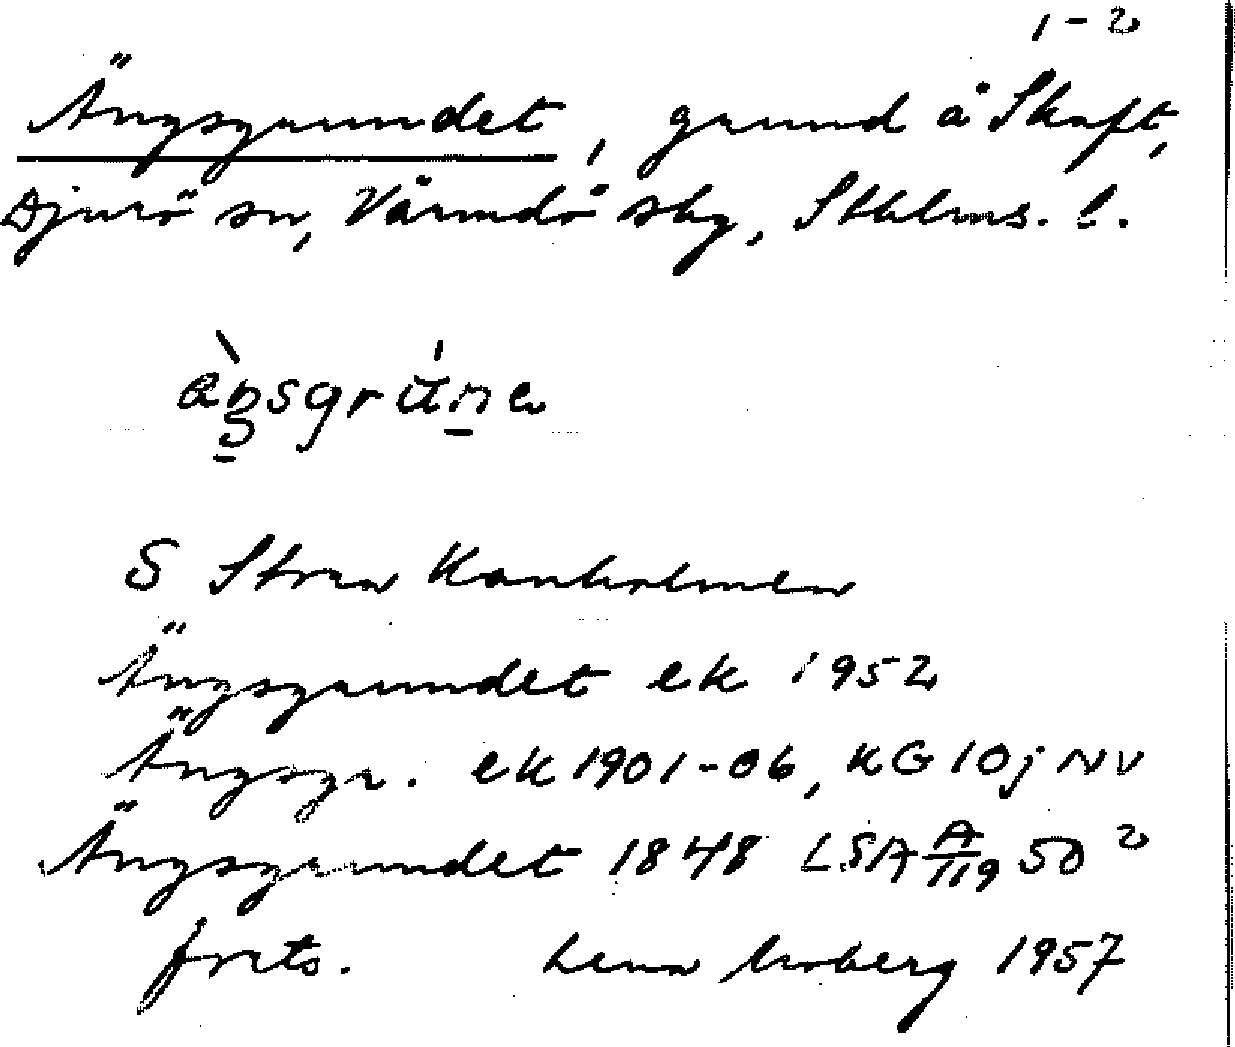 1-2
Ängsgrundet, grund å Skaft,
Djurö sn, Värmdö sky, Sthlms. l.
S Stora Kanholmen
Ängsgrundet ek 1952
Ängsgr. ek 1901-06, KG 10j NV
Ängsgrundet 1848 LSA A/119 50 2
forts. Lena Moberg 1957